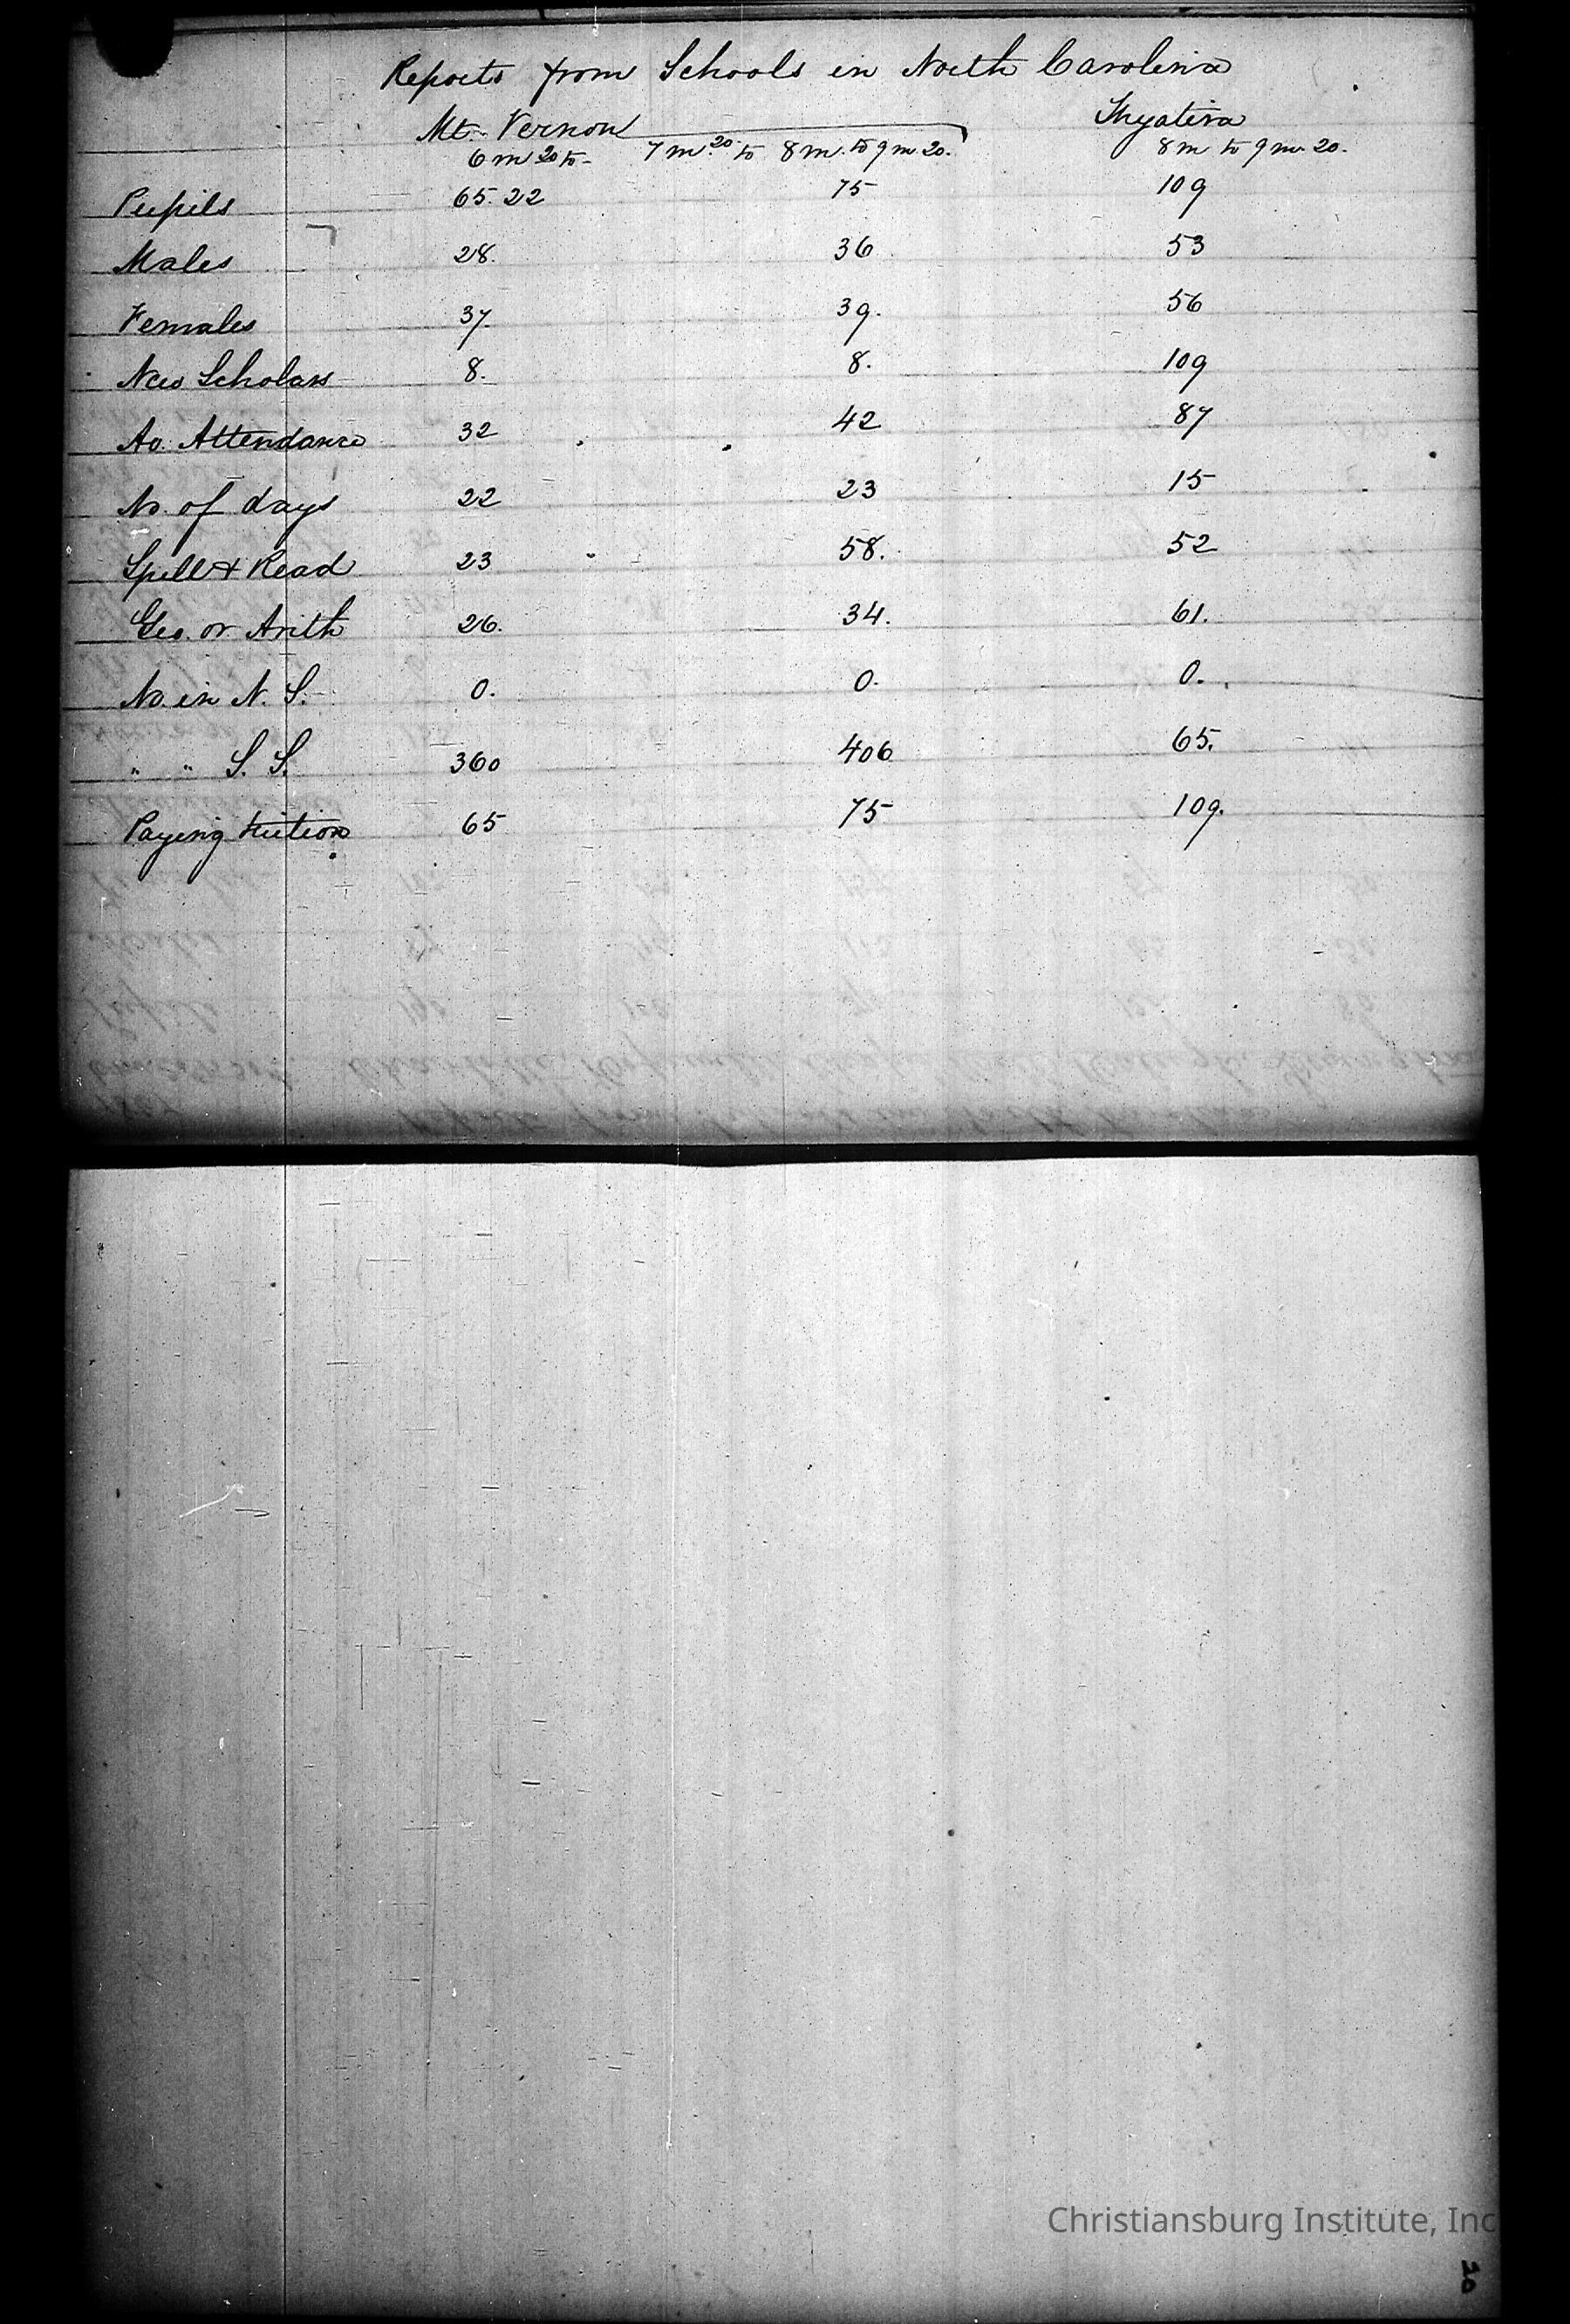 Reports from Schools in North Carolina
Mt. Vernon Thyatira
6 m 20 to 7 m. 20 to 8 m. to 9 m 20. 8 m to 9 m. 20.
Pupils 65. 22 75 109
Males 28. 36 53
Females 37. 39. 56
New Scholars 8. 8. 109
Av. Attendance 32 42 87
No. of days 22 23 15
Spell & Read 23 58. 52
Geo. or Arith 26. 34. 61.
No. in N. S. 0. 0. 0.
" " S. S. 360 406 65.
Paying tuition 65 75 109.
Christiansburg Institute, Inc
20